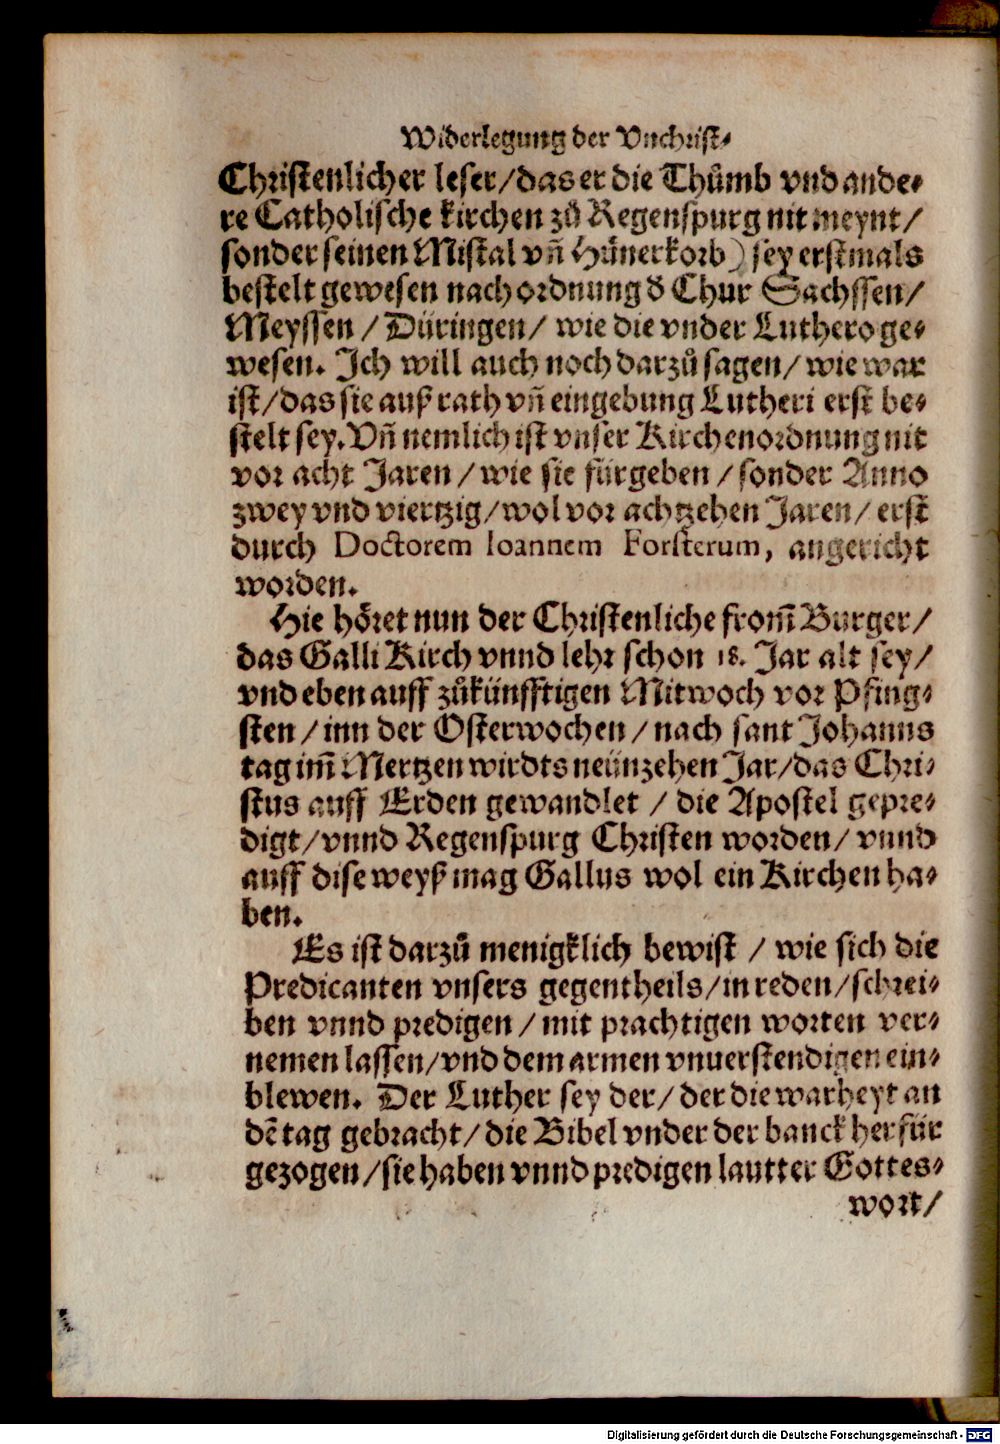 Widerlegung der Vnchrist⸗
Christenlicher leser/das er die Thůmb vnd ande⸗
re Catholische kirchen zů Regenspurg nit meynt/
sonder seinen Mistal vñ Hünerkorb) sey erstmals
bestelt gewesen nach ordnung d̄ Chur Sachssen/
Meyssen / Düringen/ wie die vnder Luthero ge⸗
wesen. Ich will auch noch darzů sagen/ wie war
ist/das sie auß rath vñ eingebung Lutheri erst be⸗
stelt sey. Vñ nemlich ist vnser Kirchenordnung nit
vor acht Jaren / wie sie fürgeben / sonder Anno
zwey vnd viertzig/wol vor achtzehen Jaren/ erst
durch Doctorem Ioannem Forsterum, angericht
worden.
Hie höret nun der Christenliche from̃ Burger/
das Galli Kirch vnnd lehr schon 18. Jar alt sey/
vnd eben auff zůkünfftigen Mitwoch vor Pfing⸗
sten / inn der Osterwochen / nach sant Johanns
tag im̃ Mertzen wirdts neünzehen Jar/das Chri⸗
stus auff Erden gewandlet / die Apostel gepre⸗
digt/vnnd Regenspurg Christen worden/ vnnd
auff dise weyß mag Gallus wol ein Kirchen ha⸗
ben.
Es ist darzů menigklich bewist / wie sich die
Predicanten vnsers gegentheils/in reden/schrei⸗
ben vnnd predigen / mit prachtigen worten ver⸗
nemen lassen/vnd dem armen vnuerstendigen ein⸗
blewen. Der Luther sey der/ der die warheyt an
dē tag gebracht/die Bibel vnder der banck herfür
gezogen /sie haben vnnd predigen lautter Gottes⸗
wort/
Digitalisierung gefördert durch die Deutsche Forschungsgemeinschaft - DFG